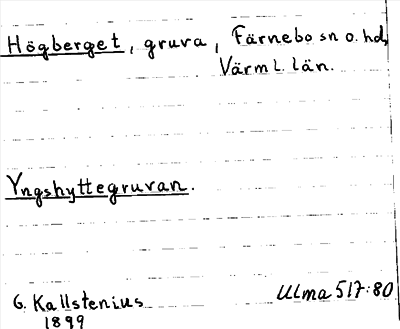 Högberget, gruva, Färnebo sn o. hd,
Värml. län.
Yngshyttegruvan.
G. Kallstenius Ulma 517:80
1899